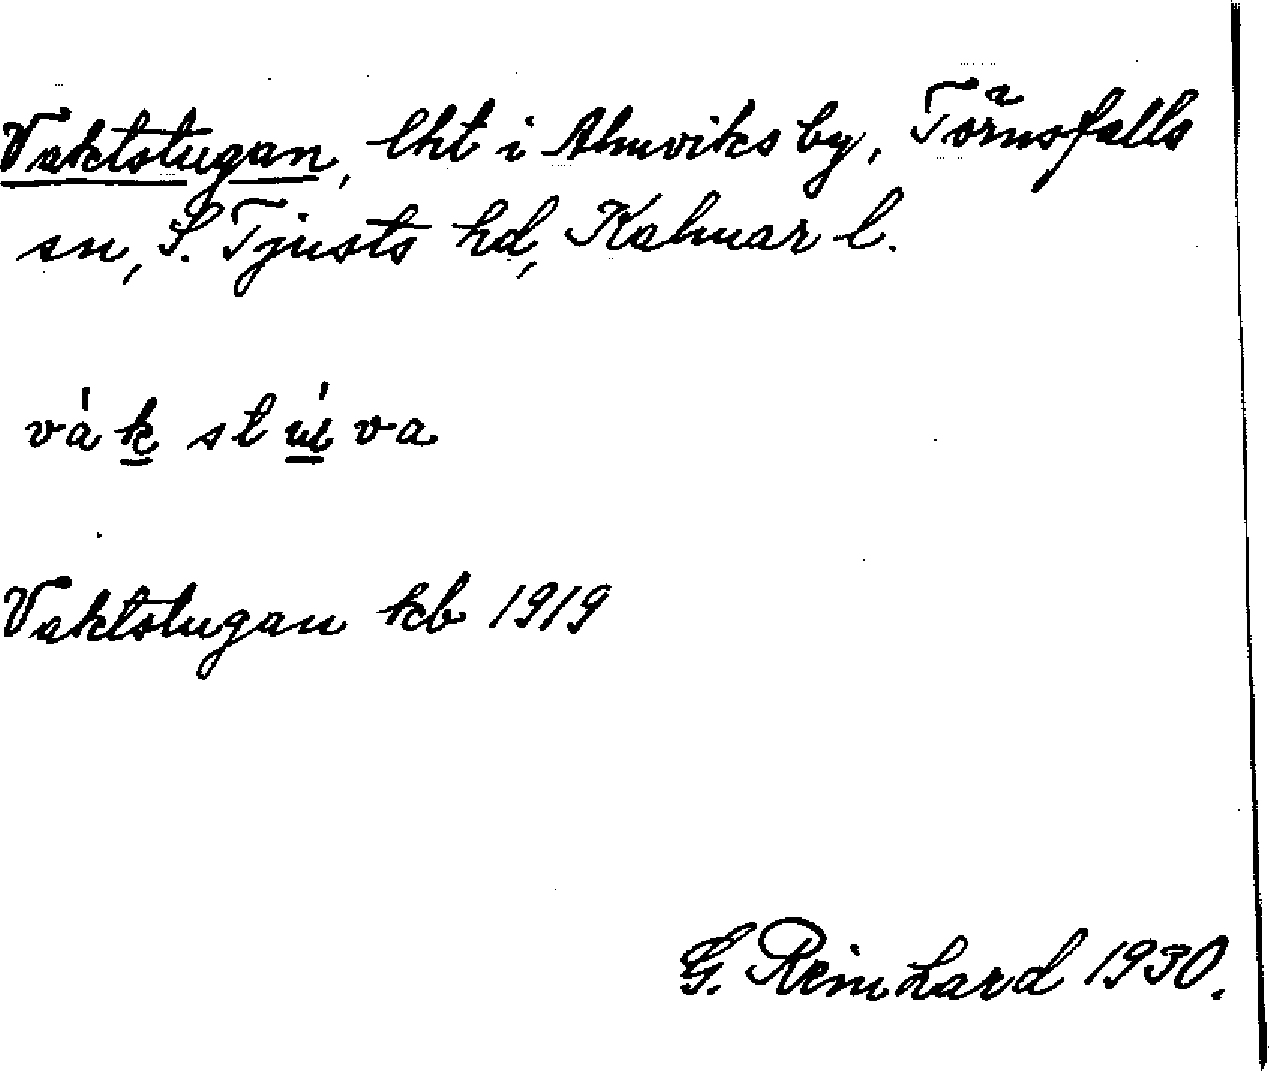 Vaktstugan, lht i Almviks by, Törnsfalls
sn, S. Tjusts hd, Kalmar l.
vák stúva
Vaktstugan kb 1919
G. Reinhard 1930.